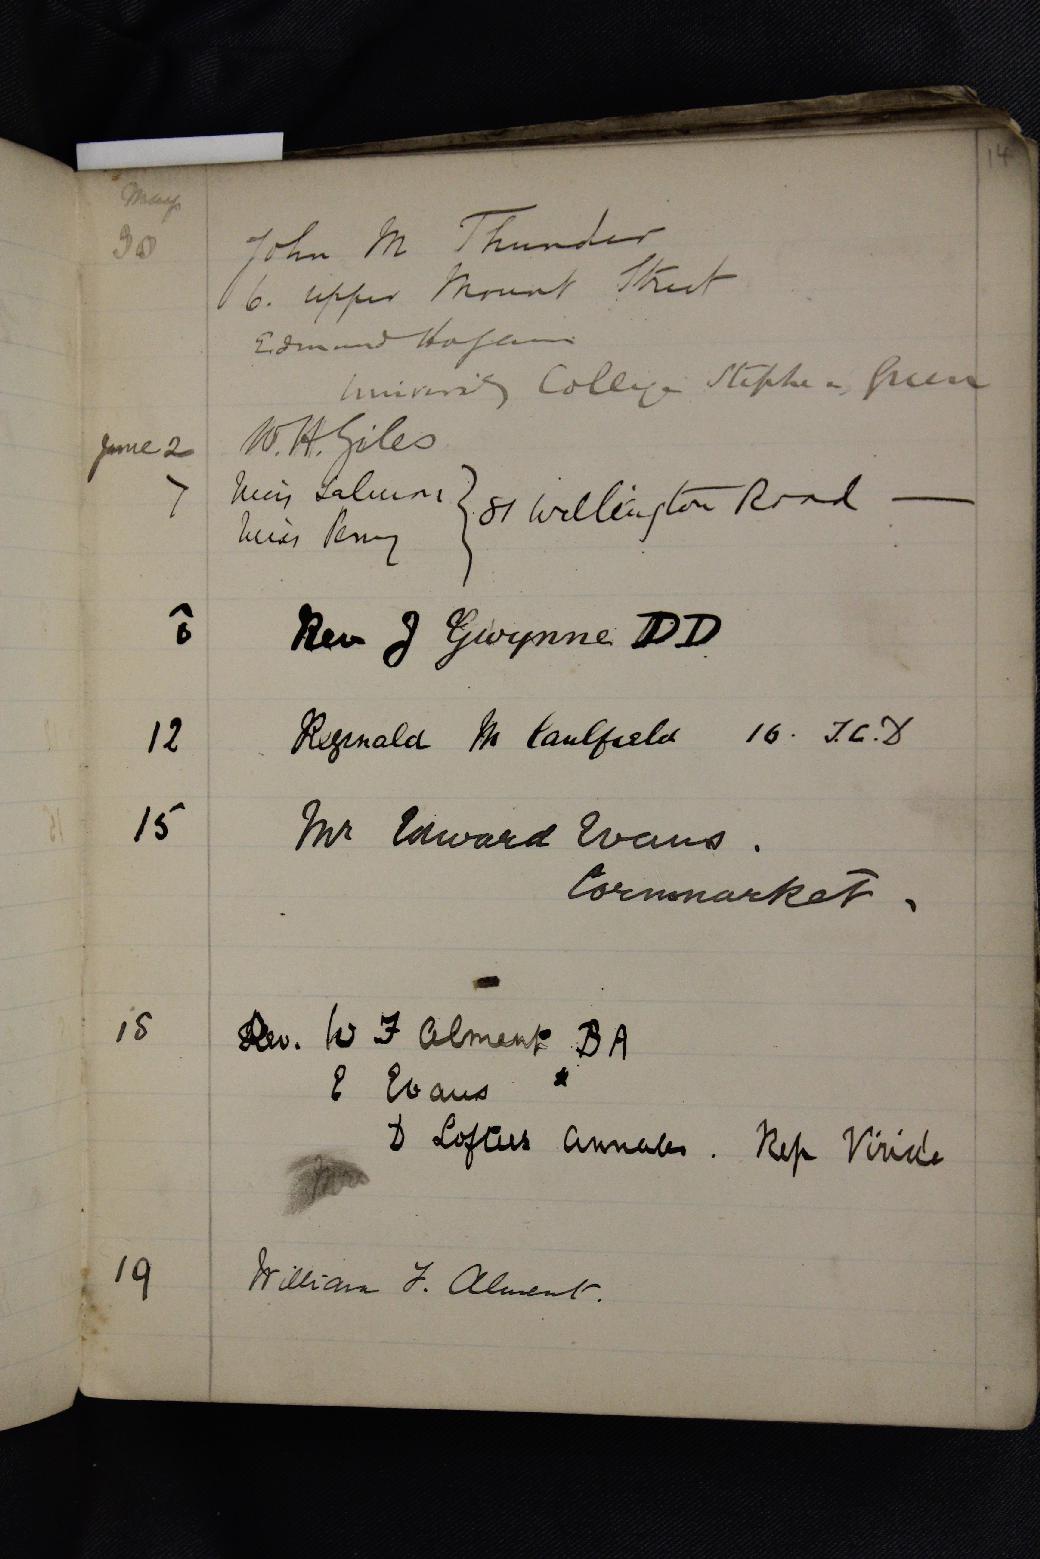 14
May
30 John M Thunder
6. upper Mount Street
Edmund Hogan
University College Stephens Green
June 2 W. H. Giles
7 Miss Salmon } 81 Wellington Road —
Miss
8 Rev J Gwynne DD
12 Reginald M Caulfield 16. T.C.D
15 Mr Edward Evans.
Cornmarket.
18 Rev. W F Alment BA
E Evans "
D Loftus Annales. Rep Viride
19 William F. Alment.